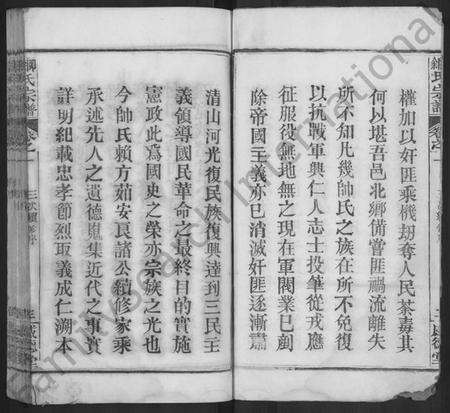 權加以奸匪乘機刼奪人民荼毒其
何以堪吾邑北鄉備嘗匪禍流離失
所不知凡幾帥氏之族在所不免復
以抗戰軍興仁人志士投筆從戎應
征服役無地無之現在軍閥業已剷
除帝國主義亦已消滅奸匪逐漸肅
清山河光復民族復興達到三民主
義領導國民革命之最終目的實施
憲政此爲國史之榮亦宗族之光也
今帥氏賴方茹安良諸公續修家乘
承述先人之遺德蒐集近代之事實
詳明紀載忠孝節烈取義成仁溯本
氏宗譜
卷之一
氏宗譜
卷之
FamilySearch International